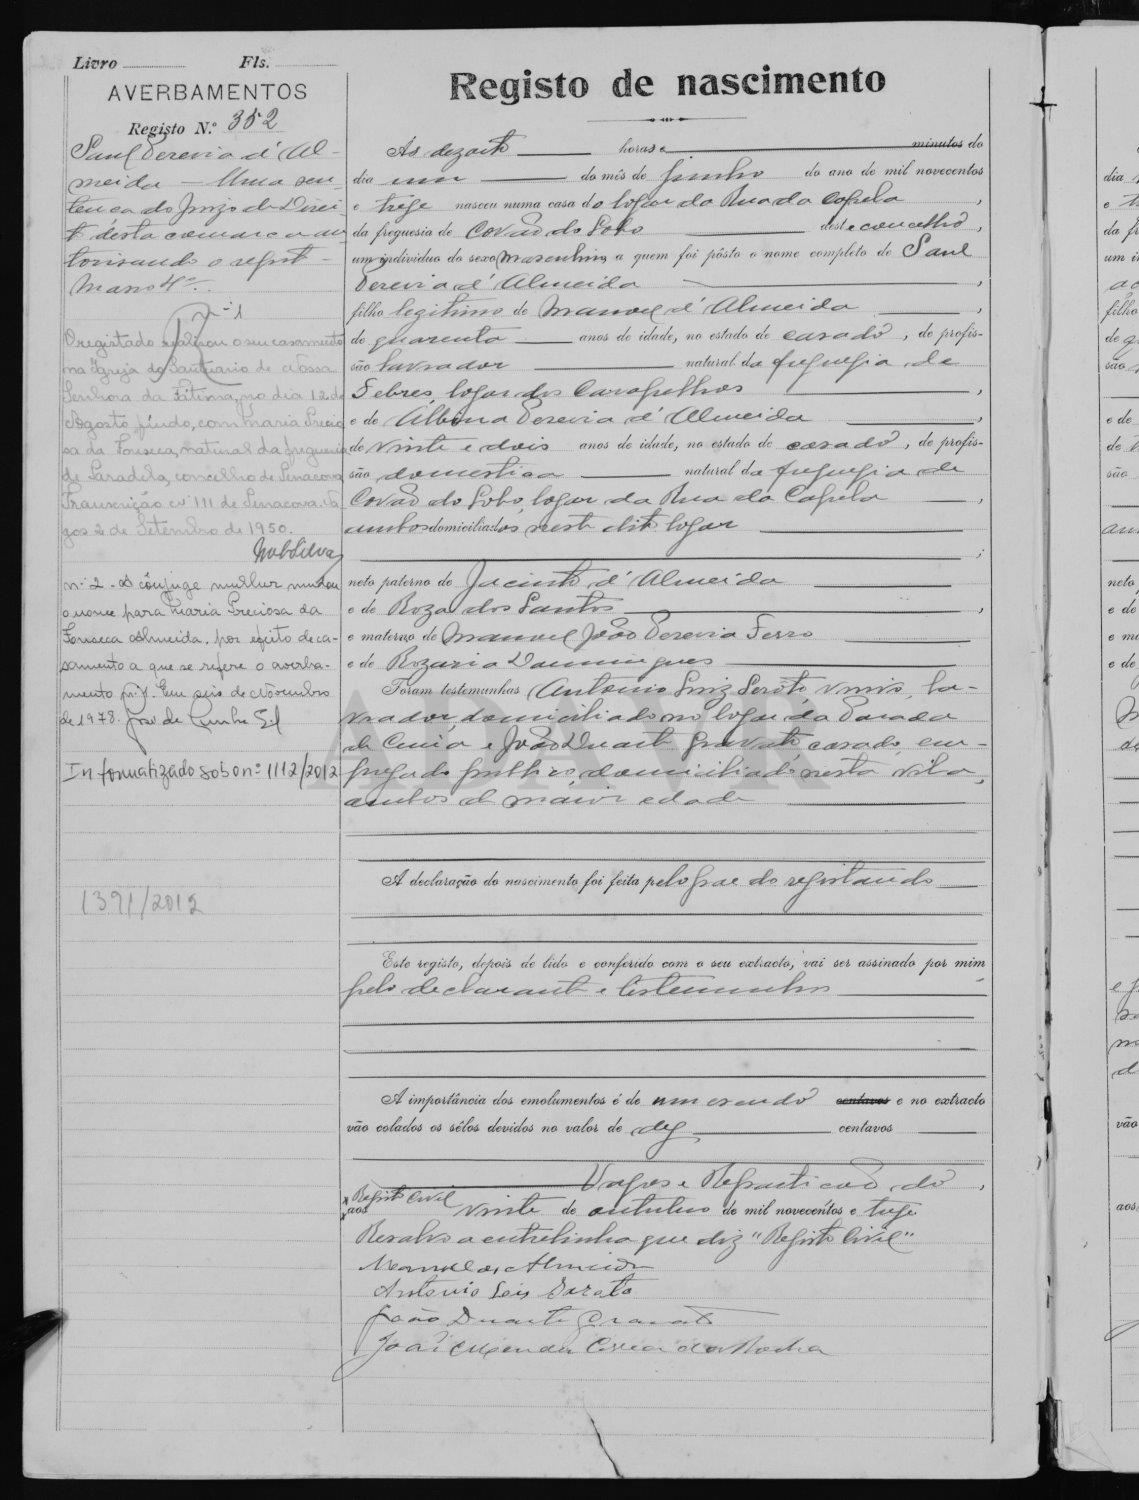 Livro Fls.
AVERBAMENTOS
Registo N.º 352
Saul Pereira d'Al-
meida — Uma sen-
tença do Juizo de Direi-
to désta comarca au
torisando o registo -
Maço 4º.
Nº 1
O registado realizou o seu casamento
na Igreja do Santuario de Nossa
Senhora da Fátima, no dia 12 de
Agosto findo, com Maria Precio
sa da Fonseca, natural da freguesia
de Paradela, concelho de Penacova
Transcrição nº 111 de Penacova. Va
gos 2 de Setembro de 1950.
nº 2 - A cônjuge mulher mudou
o nome para Maria Preciosa da
Fonseca Almeida, por efeito do ca-
samento a que se refere o averba-
mento nº 1. Em seis de Novembro
de 1978. José da Cunha
Informatizado sob o nº 1112/2012
1391/2012
Registo de nascimento
Ás dezoito horas e minutos do
dia um do mês de Junho do ano de mil novecentos
e treze nasceu numa casa do logar da Rua da Capela,
da freguesia de Covão do Lobo deste concelho,
um individuo do sexo masculino a quem foi pôsto o nome completo de Saul
Pereira d'Almeida,
filho legitimo de Manoel d'Almeida,
de quarenta anos de idade, no estado de casado, de profis-
são lavrador natural da freguezia de
Febres, logar dos Carapelhos,
e de Albina Pereira d'Almeida,
de vinte e dois anos de idade, no estado de casado, de profis-
são domestica natural da freguezia de
Covão do Lobo, logar da Rua da Capela,
ambos domiciliados neste dito logar
;
neto paterno de Jacinto d'Almeida
e de Roza dos Santos,
e materno de Manuel João Pereira Ferro
e de Rozaria Domingues
Foram testemunhas Antonio Luiz Seróto, viuvo, la-
vrador, domiciliado no logar da Parada
de Cima e João Duarte Gravato, casado, em-
pregado publico, domiciliado nesta vila,
ambos de maior edade
A declaração do nascimento foi feita pelo pae do registando
Este registo, depois de lido e conferido com o seu extracto, vai ser assinado por mim
pelo declarante e testemunhas
A importância dos emolumentos é de um escudo centavos e no extracto
vão colados os sêlos devidos no valor de dez centavos
Vagos e Repartição do
Registo Civil
aos vinte de outubro de mil novecentos e treze
Resalvo a entrelinha que diz "Registo Civil"
Manuel de Almeida
Antonio Luis Saroto
João Duarte Gravato
Correia da Rocha
ADAVR